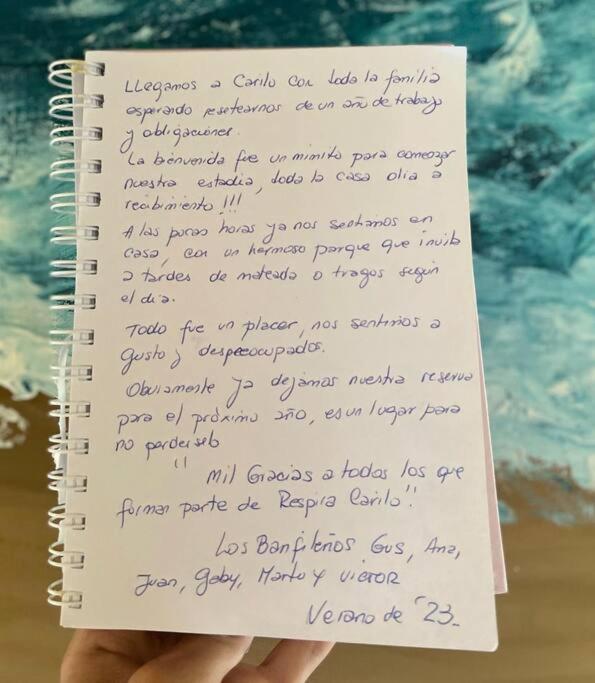 Llegamos a Carilo con toda la familia
esperando resetearnos de un año de trabajo
y obligaciones.
La bienvenida fue un mimito para comenzar
nuestra estadia, toda la casa olia a
recibimiento!!!
A las pocas horas ya nos sentiamos en
casa, con un hermoso parque que invita
a tardes de mateada o tragos según
el dia.
Todo fue un placer, nos sentimos a
gusto y despreocupados.
Obviamente ya dejamos nuestra reserva
para el próximo año, es un lugar para
no perderselo
"Mil Gracias a todos los que
forman parte de Respira Carilo"!
Los Banfileños Gus, Ana,
Juan, Gaby, Marto y Victor
Verano de '23.